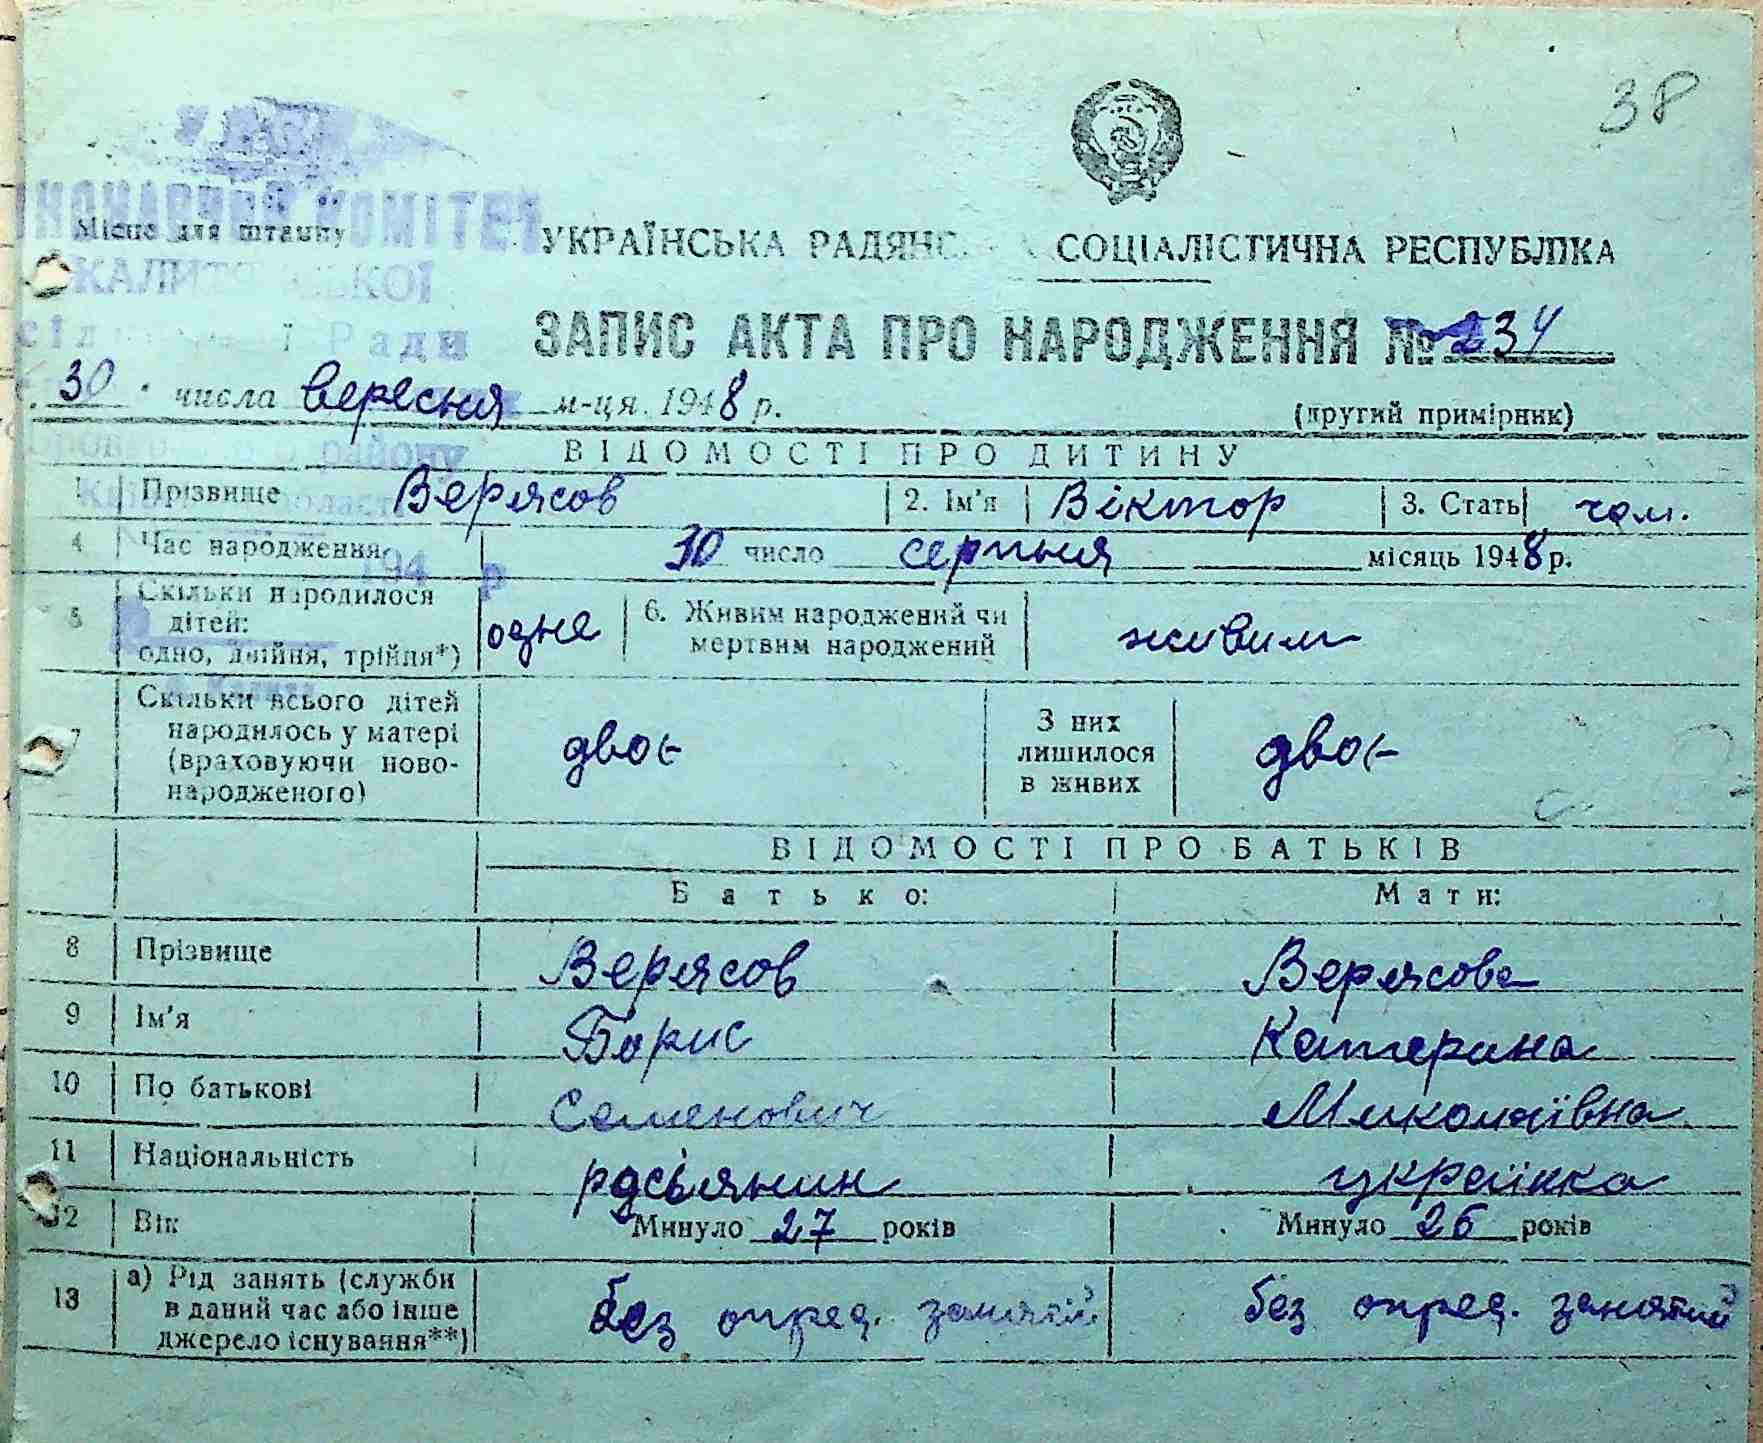 38
КОМІТЕТ
Місце для штампу
УКРАЇНСЬКА РАДЯНС СОЦІАЛІСТИЧНА РЕСПУБЛІКА
Ради
ЗАПИС АКТА ПРО НАРОДЖЕННЯ № 234
30 числа вересня м-ця 1948 р.
(другий примірник)
району
ВІДОМОСТІ ПРО ДИТИНУ
1 Прізвище Верясов 2. Ім'я Віктор 3. Стать чол.
4 Час народження 30 число серпня місяць 1948 р.
194 р
5 Скільки народилося дітей: одно, двійня, трійня*) одне 6. Живим народжений чи мертвим народжений живим
7 Скільки всього дітей народилось у матері (враховуючи новонародженого) двоє З них лишилося в живих двоє
ВІДОМОСТІ ПРО БАТЬКІВ
Батько: Мати:
8 Прізвище Верясов Верясова
9 Ім'я Борис Катерина
10 По батькові Семенович Миколаївна
11 Національність росіянин українка
12 Вік Минуло 27 років Минуло 26 років
13 а) Рід занять (служби в даний час або інше джерело існування**) без опред. занятий без опред. занятий